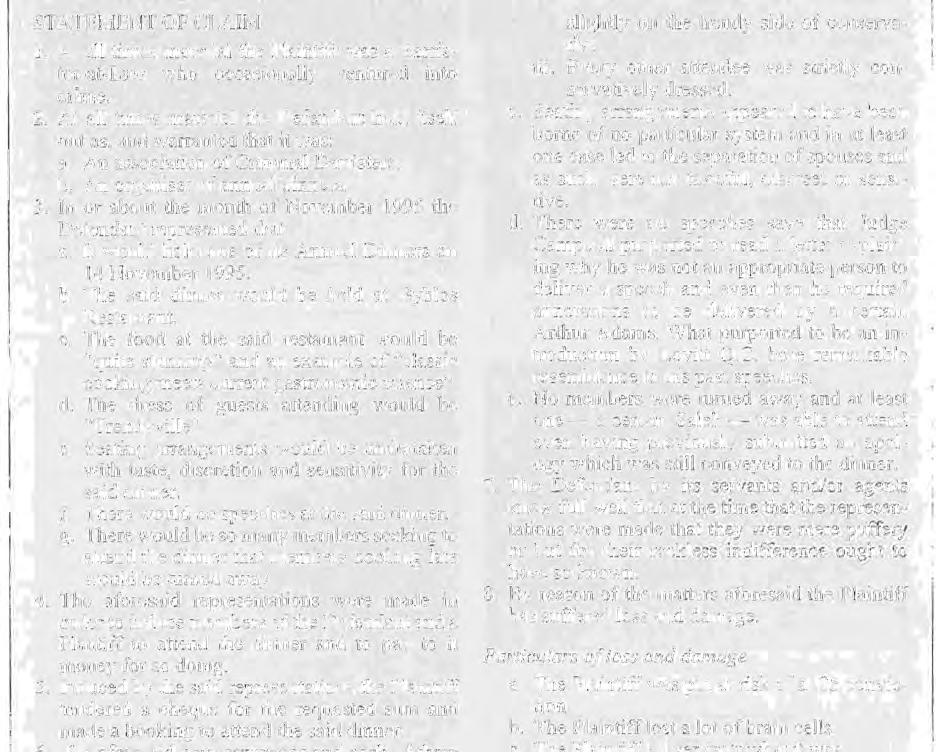 STATEMENT OF CLAIM
1. At all times material the Plaintiff was a barris-
ter-at-law who occasionally ventured into
crime.
2. At all times material the Defendant held itself
out as, and warranted that it was:
a. An association of Criminal Barristers.
b. An organiser of annual dinners.
3. In or about the month of November 1995 the
Defendant represented that
a. It would hold one of its Annual Dinners on
14 November 1995.
b. The said dinner would be held at
Restaurant.
c. The food at the said restaurant would be
"quite stunning" and an example of "classic
cooking meets current gastronomic science"
d. The dress of guests attending would be
e. Seating arrangements would be undertaken
with taste, discretion and sensitivity for the
said dinner.
f. There would be speeches at the said dinner.
g. There would be so many members seeking to
attend the dinner that members booking late
would be turned away
4. The aforesaid representations were made in
order to induce members of the Defendant and
Plaintiff to attend the dinner and to pay to it
money for so doing.
5. Induced by the said representations the Plaintiff
tendered a cheque for the requested sum and
made a booking to attend the said dinner.
slightly on the side of conserva-
tive.
iii. Every other attendee was strictly con-
servatively dressed.
c. Seating arrangements appeared to have been
borne of no particular system and in at least
one case led to the separation of spouses and
as such were not tasteful, discreet or sensi-
tive.
d. There were no speeches save that Judge
purported to read a letter explain-
ing why he was not an appropriate person to
deliver a speech and even then he required
to be delivered by a certain
Arthur Adams. What purported to be an in-
troduction by Q.C. bore remarkable
resemblance to his past speeches.
e. No members were turned away and at least
one — a person — was able to attend
even having previously submitted an apol-
ogy which was still conveyed to the dinner.
7. The Defendant by its servants and/or agents
knew full well that at the time that the represen-
tations were made that they were mere puffery
or but for their reckless indifference ought to
have so known.
8. By reason of the matters aforesaid the Plaintiff
has suffered loss and damage.
Particulars of loss and damage
a. The Plaintiff was put at risk of
b. The Plaintiff lost a lot of brain cells
c. The Plaintiff